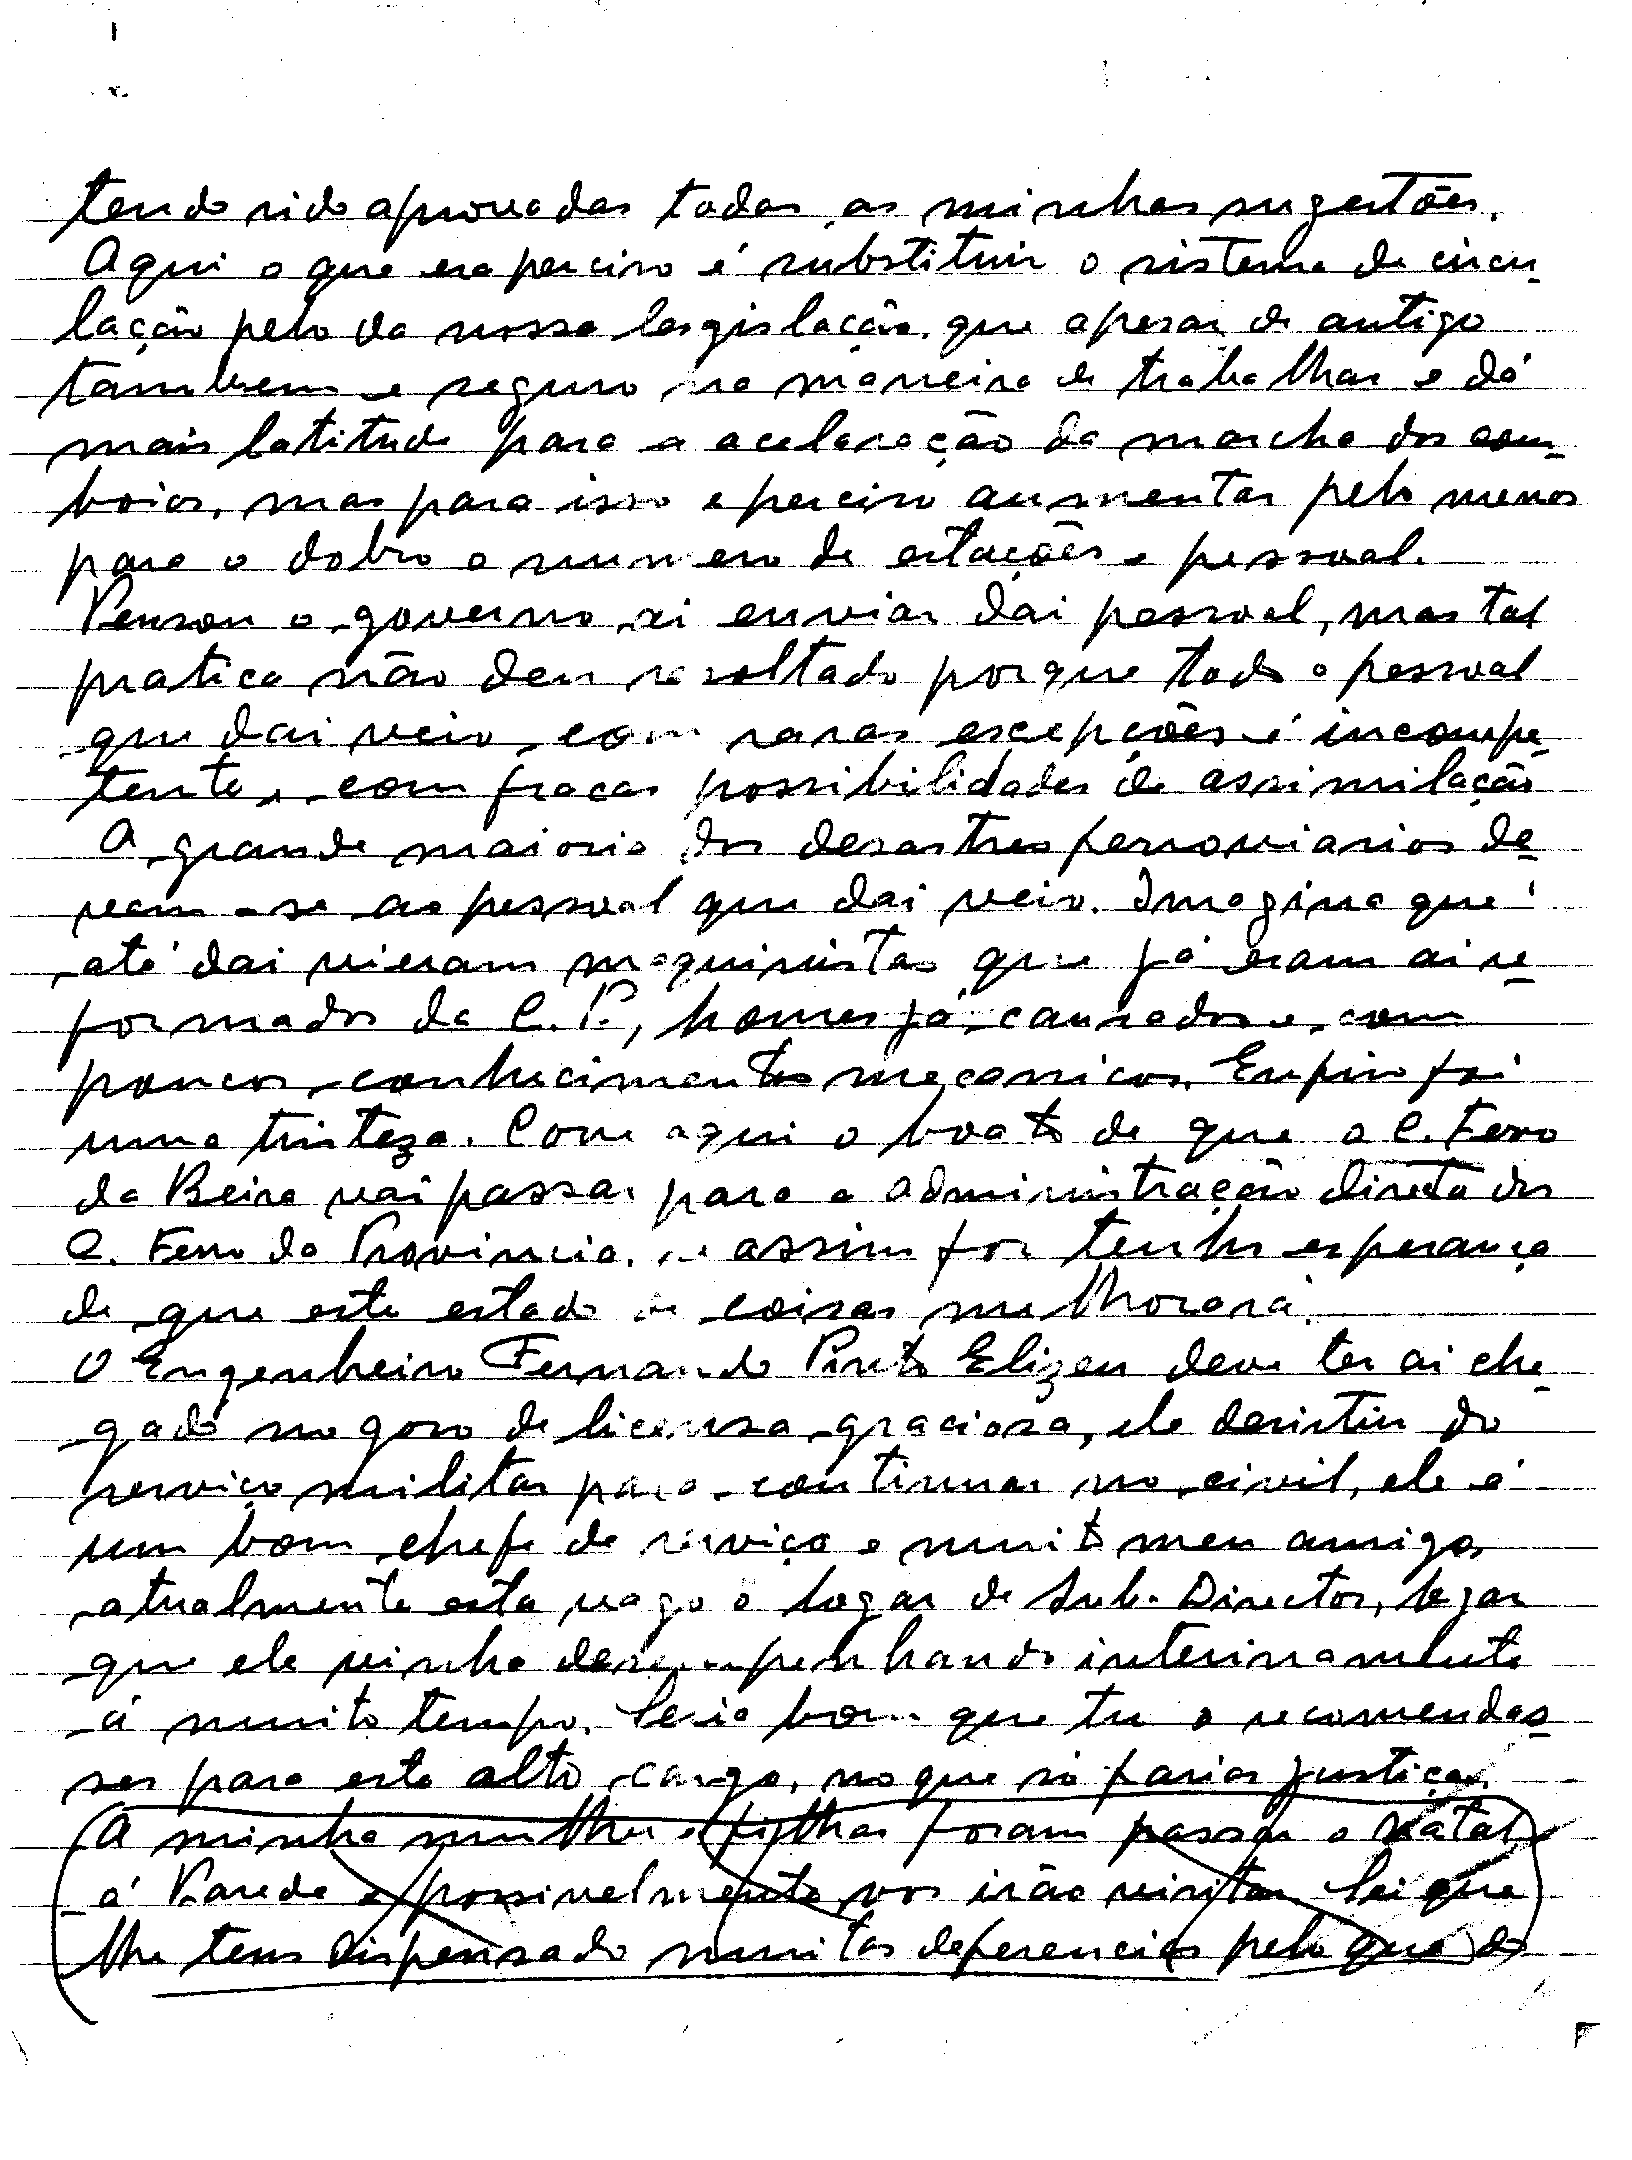 tendo sido aprovadas todas as minhas sugestões.
Aqui o que era perciso é substituir o sistema de circu-
lação pelo da nossa lesgislação, que apesar de antigo
tambem e seguro na maneira de trabalhar e dá
mais latitude para a aceleração da marcha dos com-
boios, mas para isso e perciso aumentar pelo menos
para o dobro o numero de estações e pessoal.
Pensou o governo si enviar dai pessoal, mas tal
pratica não deu resoltado porque todo o pessoal
que dai veio, com raras escepções é incompe-
tente, com fracas possibilidades de assimilação
A grande maioria dos desastres ferroviarios de-
vem-se ao pessoal que dai veio. Imagina que
até dai vieram maquinistas que já eram ai re-
formados da C.P., homes já cansados e, com
poucos conhecimentos mecanicos. Enfim foi
uma tristeza. Corre aqui o boato de que o C. Ferro
da Beira vai passar para a administração direta dos
C. Ferro da Provincia, se assim for tenho esperança
de que este estado de coisas melhorará.
O Engenheiro Fernando Pinto Elizeu deve ter ai che-
gado no goso de licensa graciosa, ele desistiu do
serviço militar para continuar no civil, ele é
um bom chefe de serviço e muito meu amigo,
atualmente esta vago o logar de Sub. Director, logar
que ele vinha desempenhando interinamente
á muito tempo. Seria bom que tu o recomendas-
ses para este alto cargo, no que só farias justiça.
A minha mulher e filhas foram passar o natal
á Parede e possivelmente vos irão visitar. Sei que
lhe tens dispensado muitas deferencias pelo que do